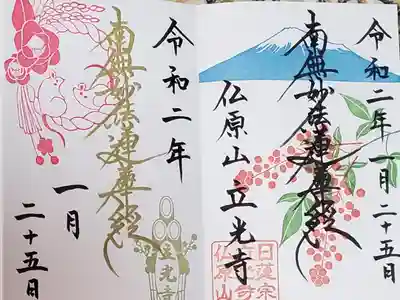 令和二年一月二十五日
南無妙法蓮華経
仏原山立光寺
日蓮宗
仏原山
令和二年
南無妙法蓮華経
一月
二十五日
立光寺